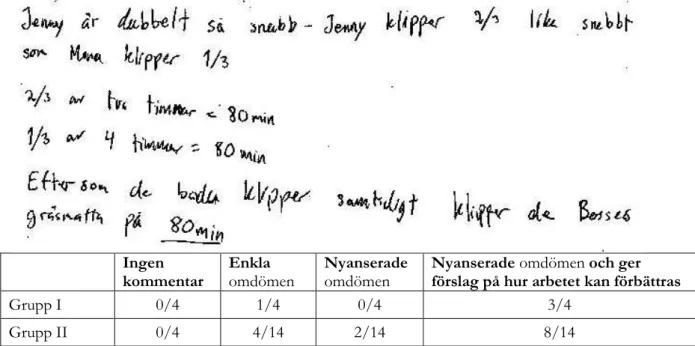 Jenny är dubbelt så snabb - Jenny klipper 2/3 like snebbt
som Mona klipper 1/3
2/3 av två timmar = 80 min
1/3 av 4 timmar = 80 min
Eftersom de båda klipper samtidigt klipper de Bosses
gräsmatta på 80min
Ingen kommentar Enkla omdömen Nyanserade omdömen Nyanserade omdömen och ger förslag på hur arbetet kan förbättras
Grupp I 0/4 1/4 0/4 3/4
Grupp II 0/4 4/14 2/14 8/14